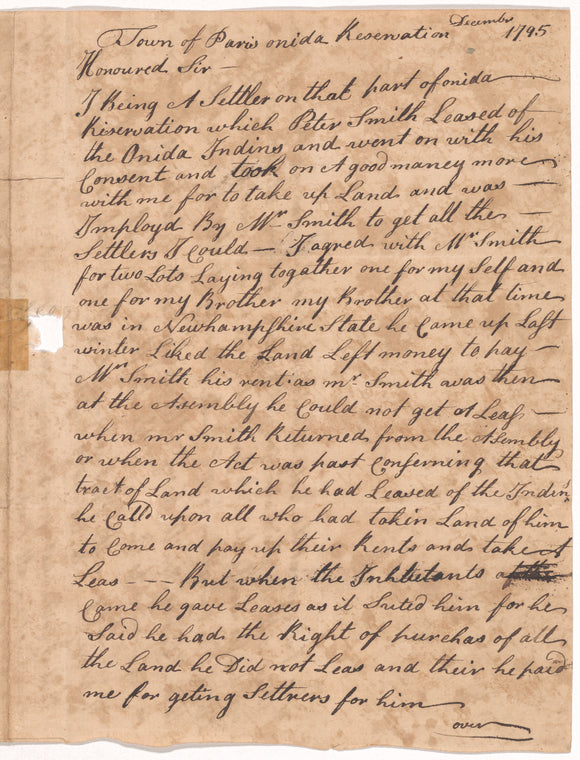 Town of Paris onida Reservation December 1795
Honoured Sir —
I Being A Settler on that part of onida
Riservation which Peter Smith Leased of
the Onida Indins and went on with his
Consent and took on A good maney more
with me for to take up Land and was —
Imployd By Mr Smith to get all the —
Settlers I Could — I agred with Mr Smith
for two Lots Laying togather one for my Self and
one for my Brother my Brother at that time
was in Newhampshire State he Came up Last
winter Liked the Land Left money to pay —
Mr Smith his rent: as mr Smith was then
at the Asembly he Could not get A Leas —
when mr Smith Returned from the Asembly
or when the Act was past Conferning that
tract of Land which he had Leased of the Indin
he Calld upon all who had takin Land of him
to Come and pay up their Rents and take A
Leas — — — But when the Inhbutants
Came he gave Leases as it Suted him for he
Said he had the Right of purchas of all
the Land he Did not Leas and their he paid
me for geting Settrers for him
over